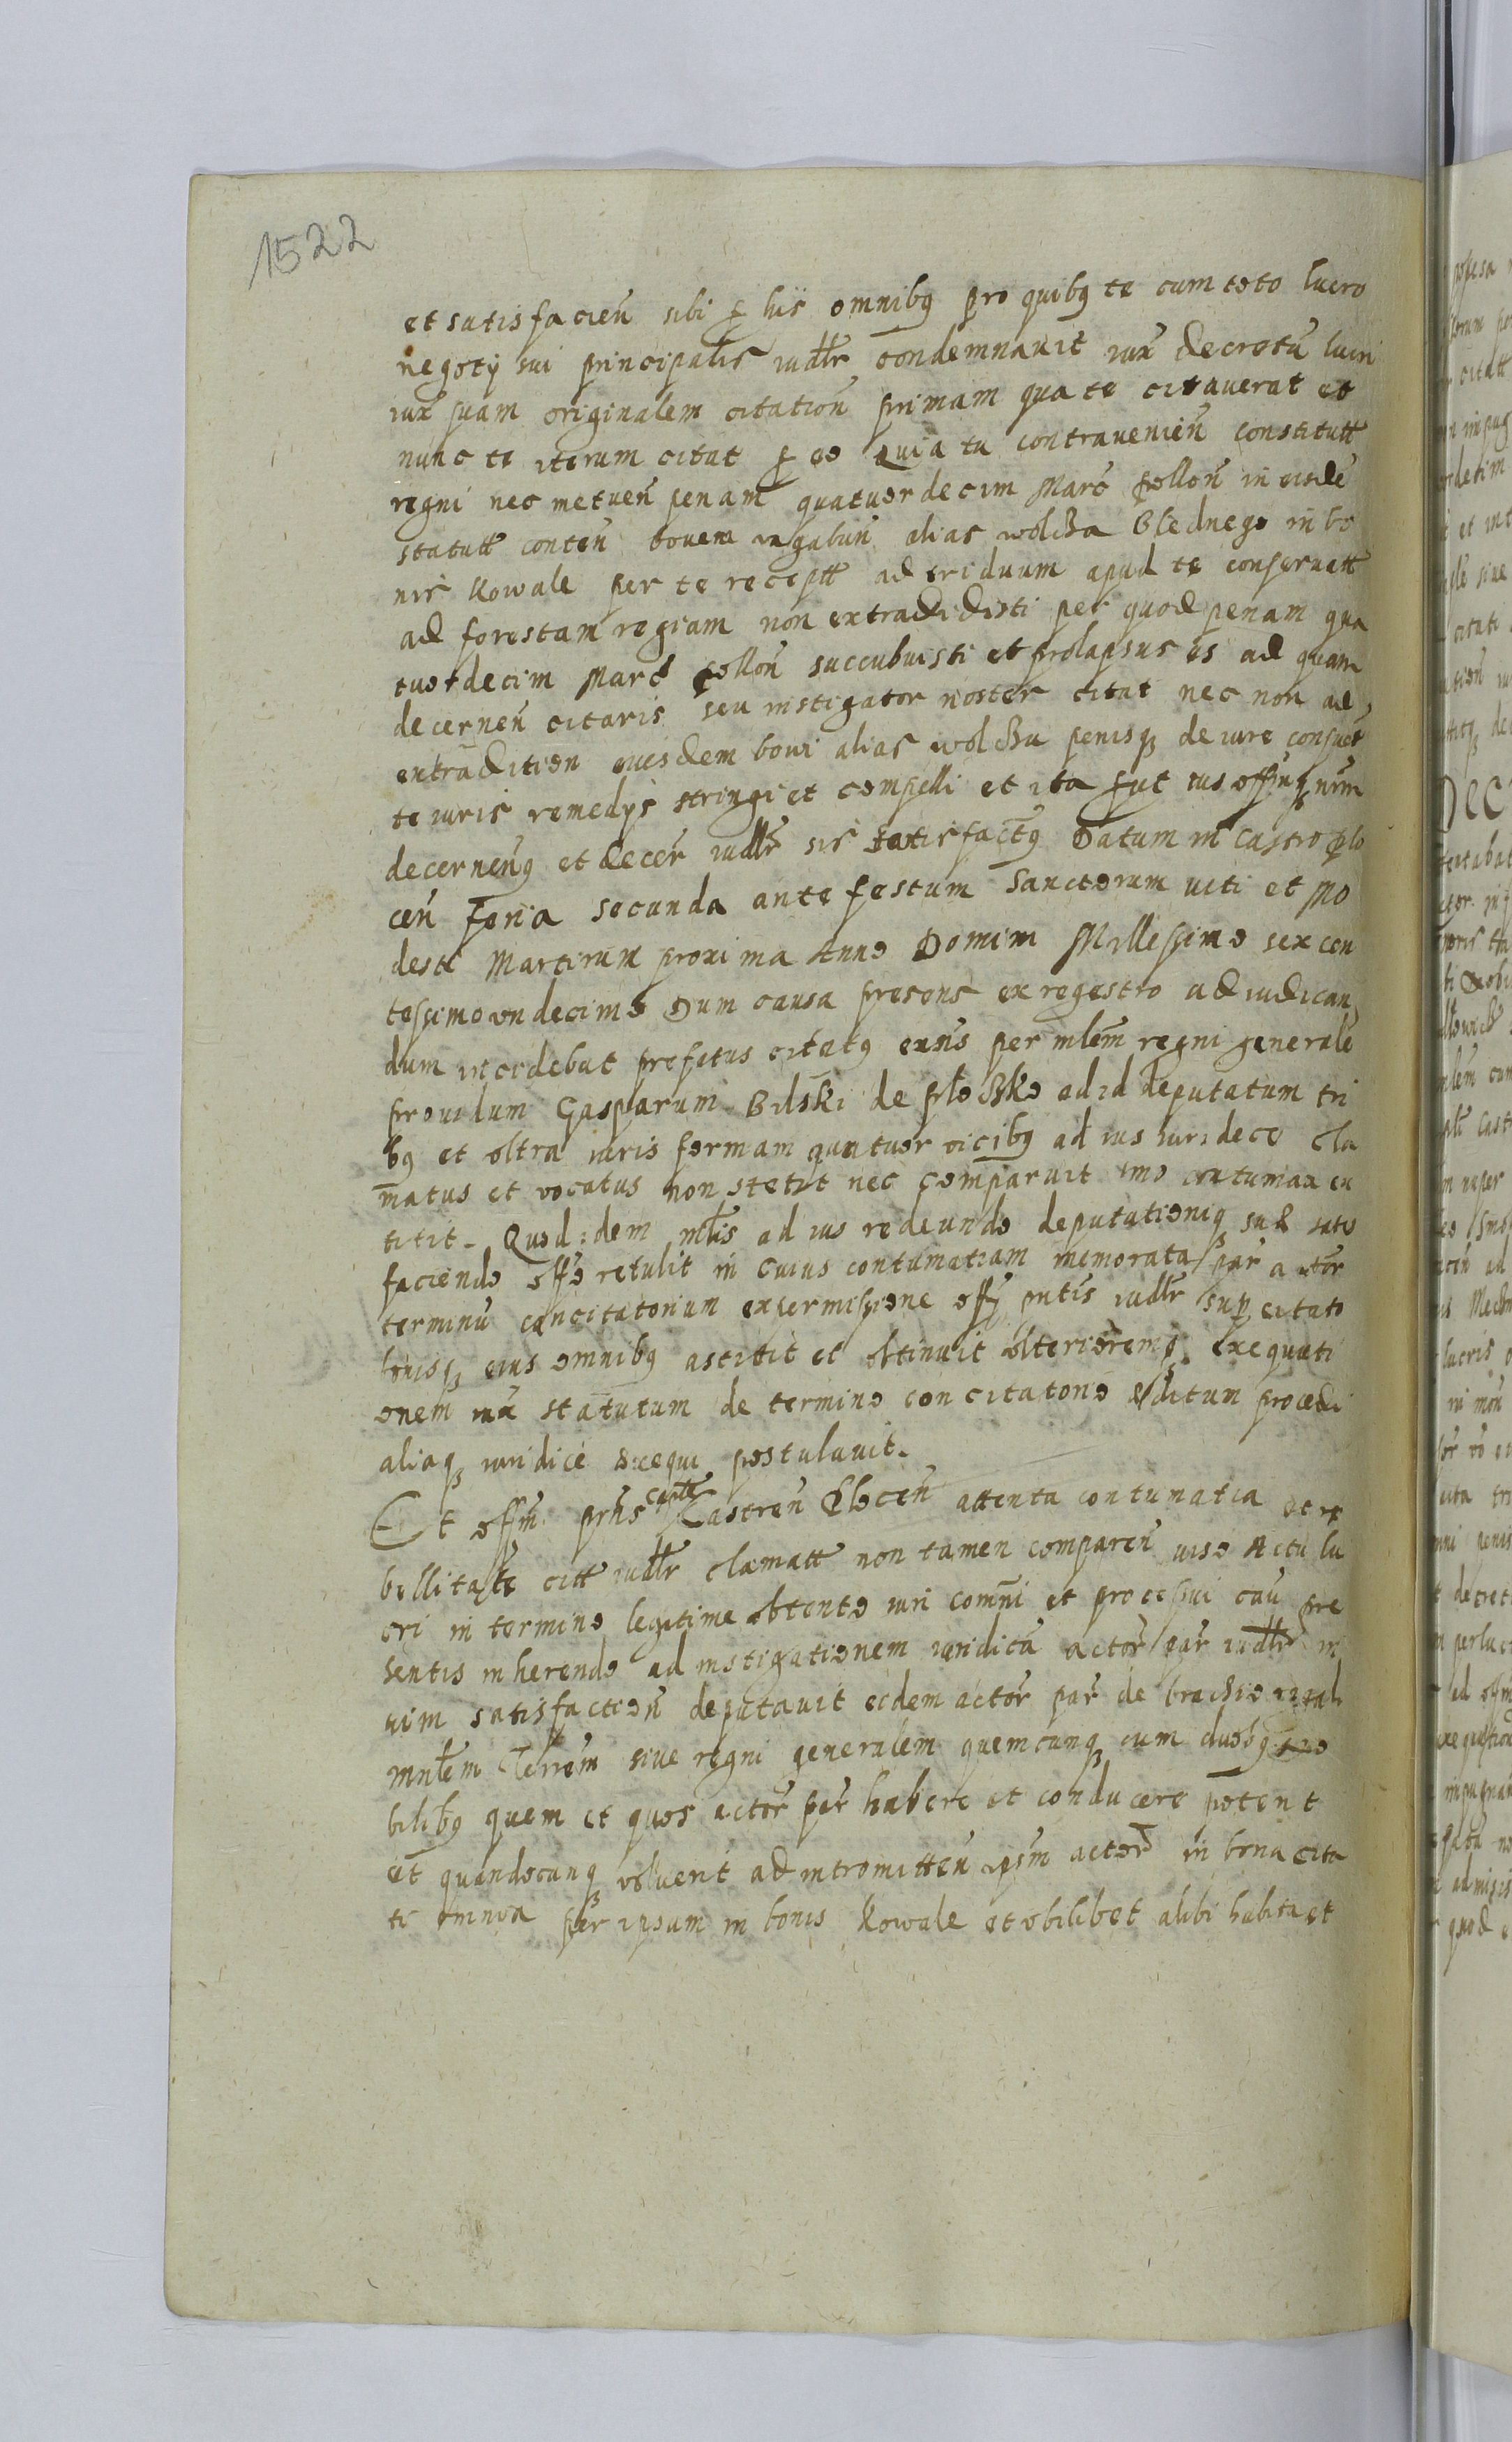 1522
et satisfacien̄ sibi ꝑ hiis omnibꝫ pro quibꝫ te cum toto lucro
negoty sui principalis iudłr condemnauit iux̄ decretū lucri
iux̄ suam originalem citation̄ primam qua te citauerat et
nunc te iterum citat ꝑ eo Quia tu contravenien̄ constitutt
regni nec metuen̄ penam quatuordecim Marc̄ pollon̄ in eisdē
statutt conten̄ bovem vagabun̄ alias wolcza Blednego in bo
nis Kowale per te receptt ad triduum apud te conseruatt
ad forestam regiam non extradidisti per quod penam qua
tuordecim Marc̄ pollon̄ succubuisti et prolapsus es ad quam
decernen̄ citaris seu instigator noster citat nec non ad
extradition̄ eiusdem boui alias wolcza penisqꝫ de iure consuet
te iuris remedys stringi et compelli et ita put ius
decernenꝫ et decer̄ iudłr sis satisfactꝫ Datum in Castro plo
cen̄ Feria secunda ante festum Sanctorum viti et Mo
desti Martirum proxima Anno Domini Millessimo sexcen
tessimo undecimo Dum causa presens ex regestro ad iudican
dum incidebat prefatus citatꝫ exn̄s per mlem̄ regni generale
providum Gasparum Bilski de ploczko ad id deputatum tri
bꝫ et vltra iuris formam quatuor vicibꝫ ad ius iuridece cla
matus et vocatus non stetit nec comparuit imo contumax ex
titit. Quod idem mlis̄ ad ius redeundo deputationiqꝫ sue satis
faciendo offo retulit in cuius contumatiam memorata par̄ actor̄
terminū concitatorium ex permissione offy pn̄tis iudłr sup citato
bonisqꝫ eius omnibꝫ astitit et obtinuit vlteriorem exequuti
onem iux̄ statutum de termino concitatorio editum procedi
aliaqꝫ iuridice exequi postulavit.
Et offm̄ prn̄s captt Castren̄ Plocen̄ attenta contumatia et re
bellitate citt iudłr clamatt non tamen comparen̄ viso Actu lu
cri in termino legitime obtento iuri comn̄i et processui cau pre
sentis inherendo ad instigationem iuridicā actor̄ par̄ iudłr in
vim satisfaction̄ deputauit eidem actor̄ par̄ de brachio regali
mnl̄em Terrem̄ siue regni generalem quemcunqꝫ cum duobꝫ no
bilibꝫ quem et quos actor̄ par̄ habere et conducere potent
et quandocunqꝫ voluerit ad intromitten̄ ipsm̄ actor̄ in bona cita
ti omnia per ipsum in bonis Kowale et vbilibet alibi habita et